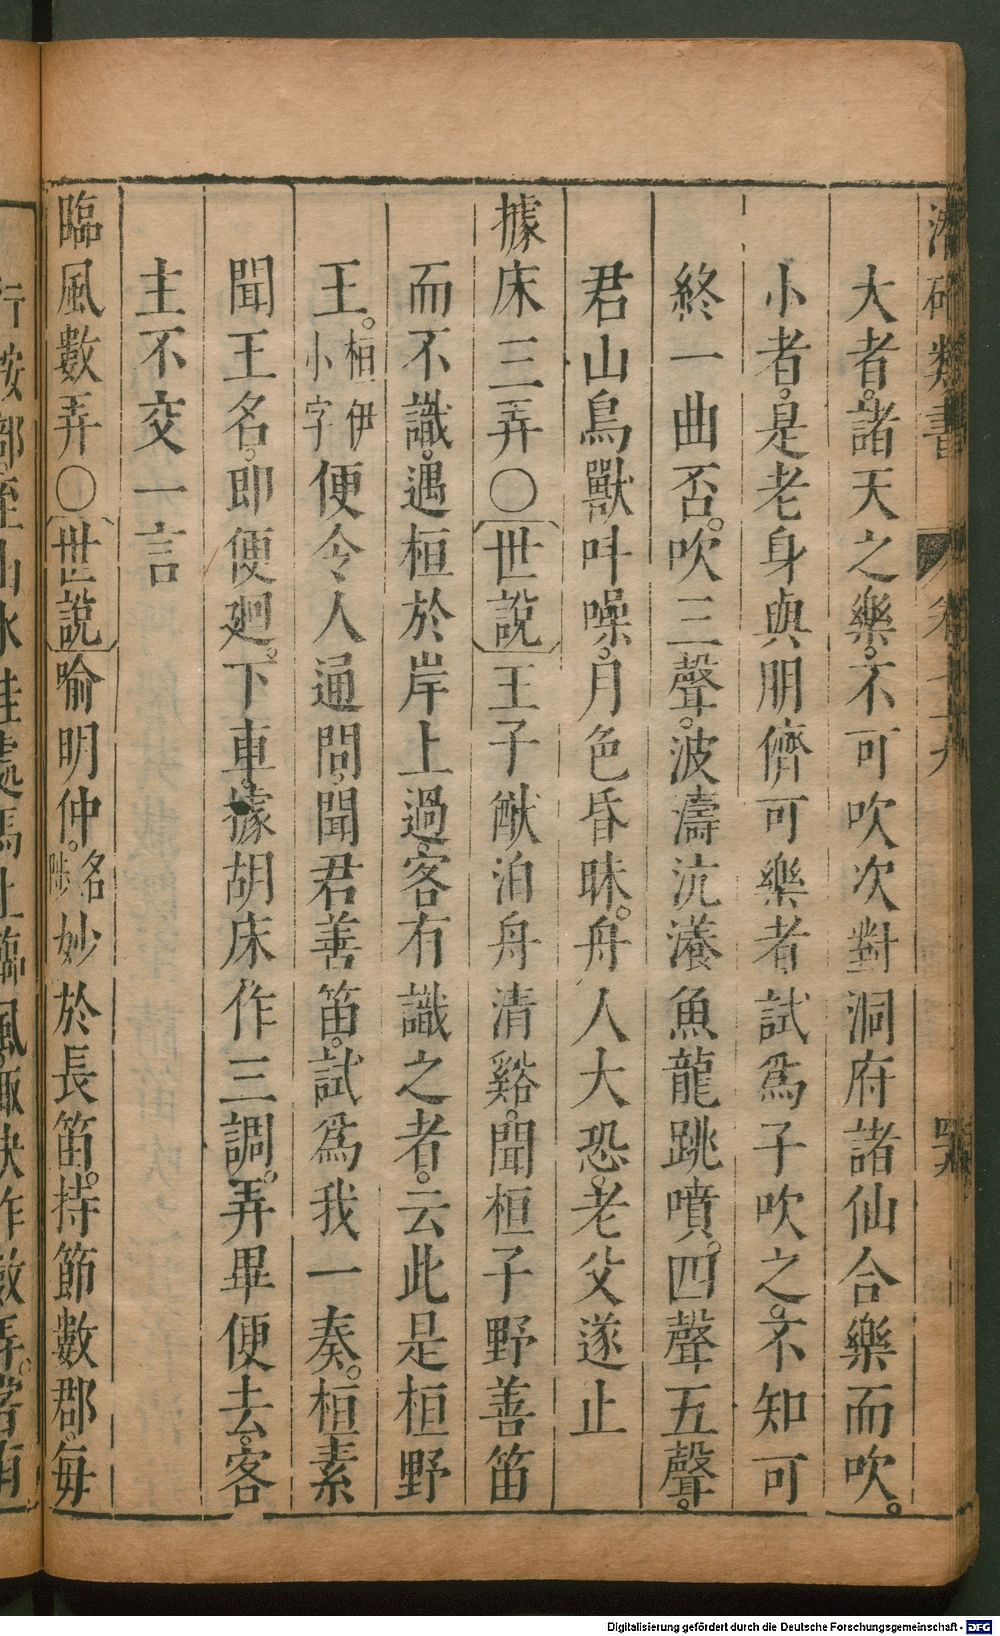 類書
卷七十九
大者。諸天之樂。不可吹次對洞府諸仙合樂而吹。
小者。是老身與朋儕可樂者試爲子吹之。不知可
終一曲否。吹三聲。波濤沆瀁魚龍跳噴。四聲五聲。
君山鳥獸叫噪。月色昏昧。舟人大恐。老父遂止
據床三弄○世說王子猷泊舟清谿。聞桓子野善笛
而不識。遇桓於岸上過。客有識之者。云此是桓野
王。桓伊小字便令人通問。聞君善笛。試爲我一奏。桓素
聞王名。卽便廻。下車。據胡床作三調。弄畢便去。客
主不交一言
臨風數弄○世說喻明仲。名陟妙於長笛。持節數郡。每
行按部
Digitalisierung gefördert durch die Deutsche Forschungsgemeinschaft - DFG